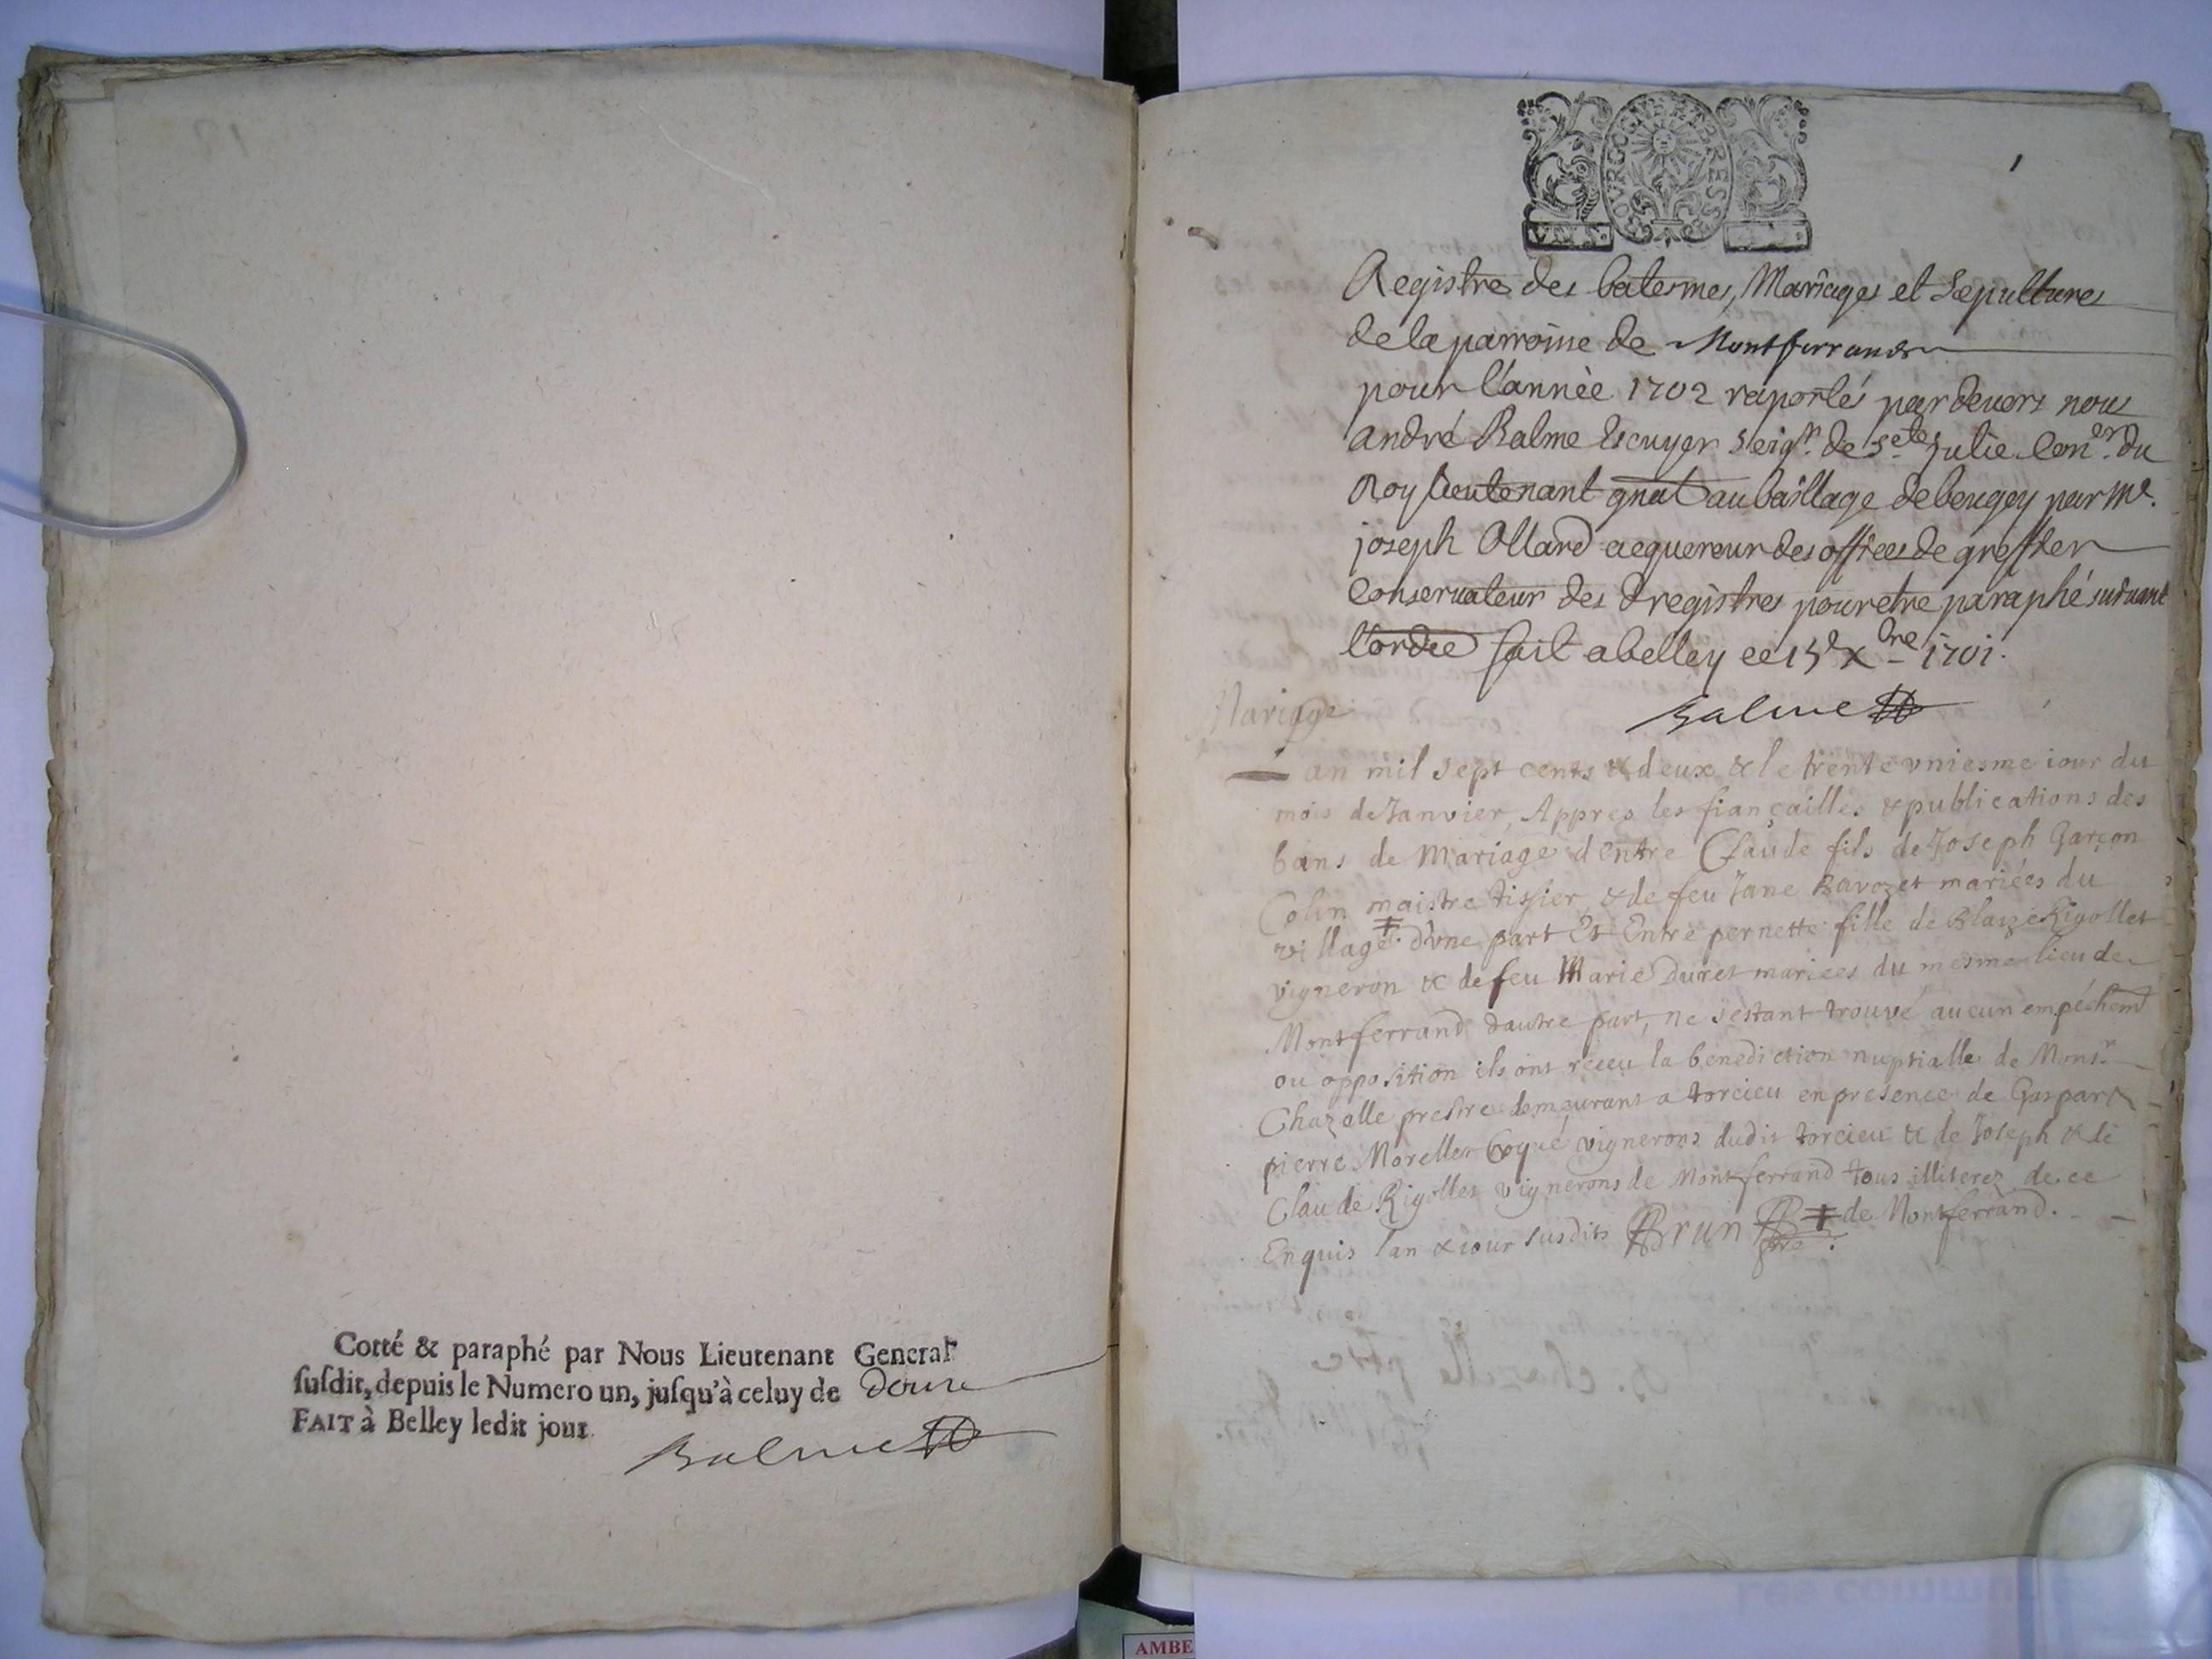 Cotté & paraphé par Nous Lieutenant General
susdit, depuis le Numero un, jusqu'à celuy de douze
FAIT à Belley ledit jour
Balme
BOVRGOGNE ET BRESSE
1
Registre des batesmes, Mariages et Sepultures
de la parroisse de Montferrand
pour l'année 1702 raportés pardevers nous
andré Balme Escuyer seigr. de Ste julie Coner. du
Roy lieutenant gnal au baillage de beugey par Me.
joseph Ollard acquereur des offices de greffier
Conservateur des dregistres pour etre paraphé suivant
l'ordre fait a belley ce 15e Xbre 1701.
Balme
Mariage
L an mil sept cents & deux & le trente vniesme iour du
mois de Janvier, Appres les fiançailles & publications des
bans de Mariage d'entre Claude fils de Joseph Garçon
Colin maistre tissier, & de feu Jane Ravozet mariées du
village ‡. d'vne part Et Entre pernette fille de Blaize Rigollet
vigneron & de feu Marie Duret mariees du mesme lieu de
Montferrand d'autre part, ne s'estant trouvé aucun empéchemt
ou opposition ils ont receu la benediction nuptialle de Monsr.
Chazelle prestre demeurant a torcieu en presence de Gaspar &
pierre Morellet Coque vignerons dudit torcieu & de Joseph & de
Claude Rigollet vignerons de Montferrand tous illiterez de ce
Enquis l'an & iour susdits Brun ptre. ‡ de Montferrand.
AMBE